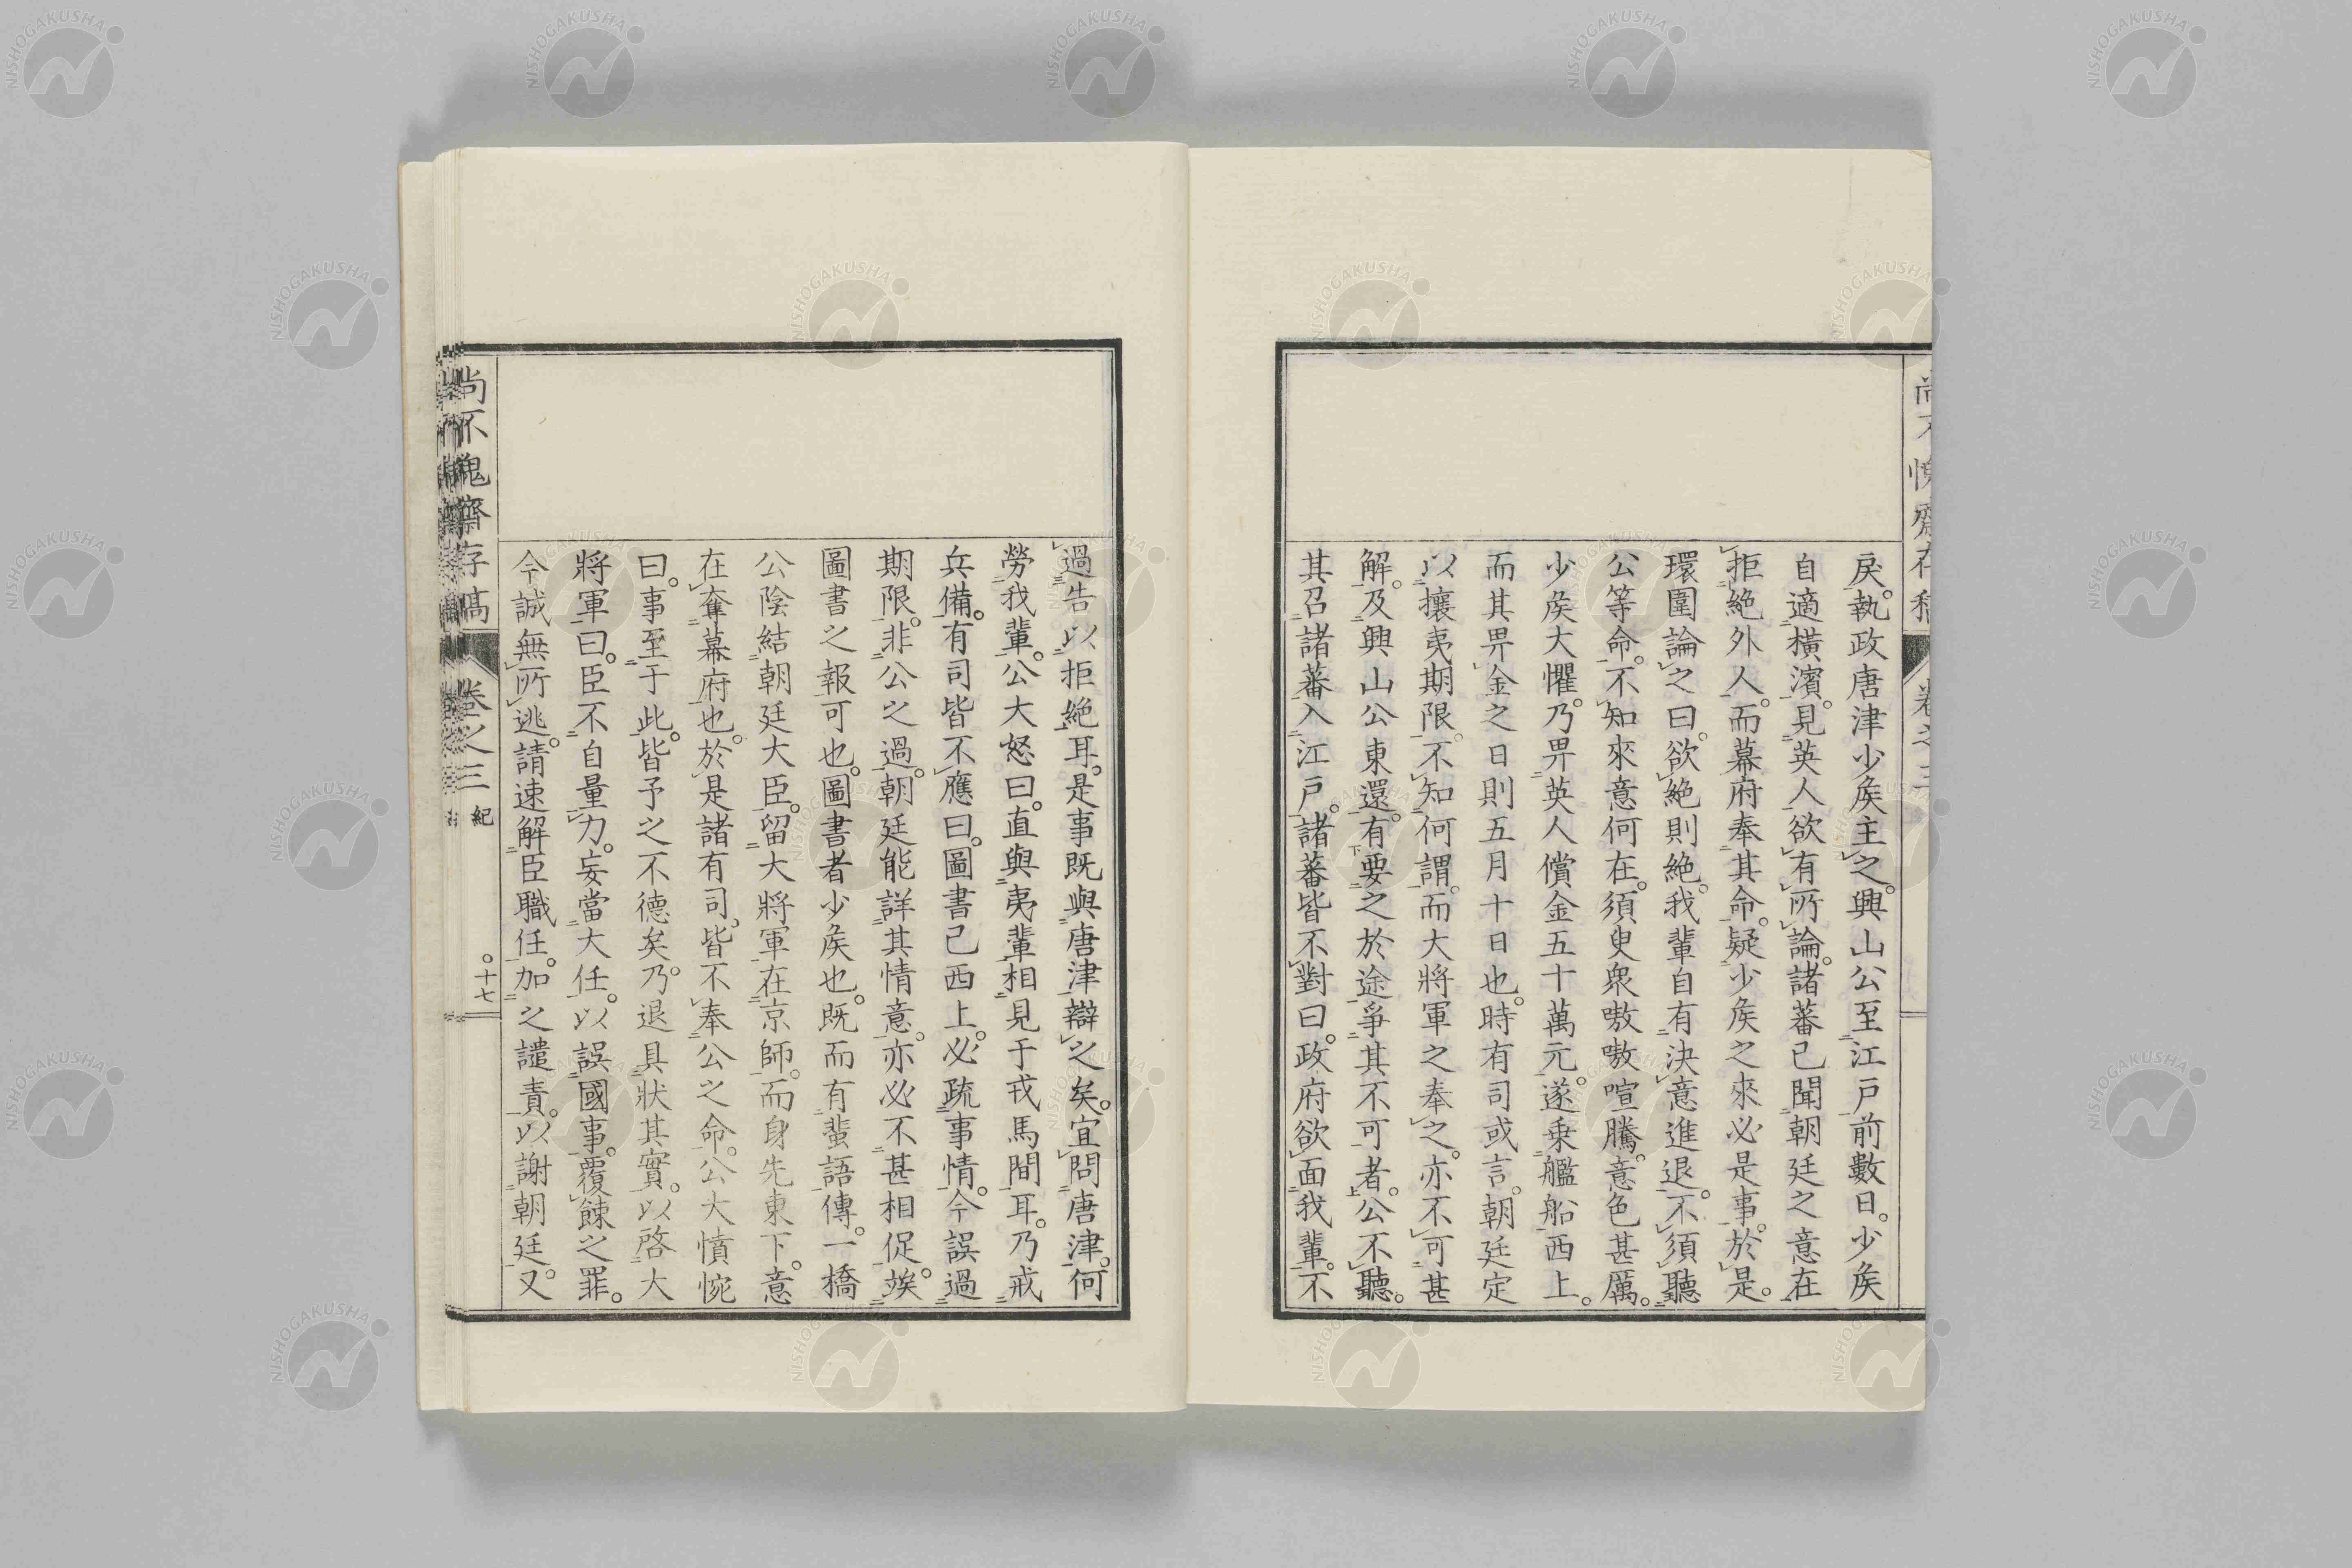 戾。執政唐津少矦主之。興山公至江戸前數日。少矦
自適橫濱。見英人欲有所論。諸蕃已聞朝廷之意在
拒絶外人。而幕府奉其命。疑少矦之來必是事。於是。
環圍論之曰。欲絶則絶。我輩自有決意進退。不須聽
公等命。不知來意何在。須臾衆嗷嗷喧騰。意色甚厲。
少矦大懼。乃畀英人償金五十萬元。遂乘艦船西上。
而其畀金之日則五月十日也。時有司或言。朝廷定
以攘夷期限。不知何謂。而大將軍之奉之。亦不可甚
解。及興山公東還。有要之於途爭其不可者。公不聽。
其召諸蕃入江戸。諸蕃皆不對曰。政府欲面我輩。不
尚不愧齋存稿
卷之三
過告以拒絶耳。是事既與唐津辯之矣。宜問唐津。何
勞我輩。公大怒曰。直與夷輩相見于戎馬間耳。乃戒
兵備。有司皆不應曰。圖書已西上。必疏事情。今誤過
期限。非公之過。朝廷能詳其情意。亦必不甚相促。竢
圖書之報可也。圖書者少矦也。既而有蜚語傳。一橋
公陰結朝廷大臣。留大將軍在京師。而身先東下。意
在奪幕府也。於是諸有司。皆不奉公之命。公大憤惋
曰。事至于此。皆予之不德矣。乃退具狀其實。以啓大
將軍曰。臣不自量力。妄當大任。以誤國事。覆餗之罪。
今誠無所逃。請速解臣職任。加之譴責。以謝朝廷。又
尚不愧齋存稿
卷之三
紀
十七
NISHOGAKUSHA